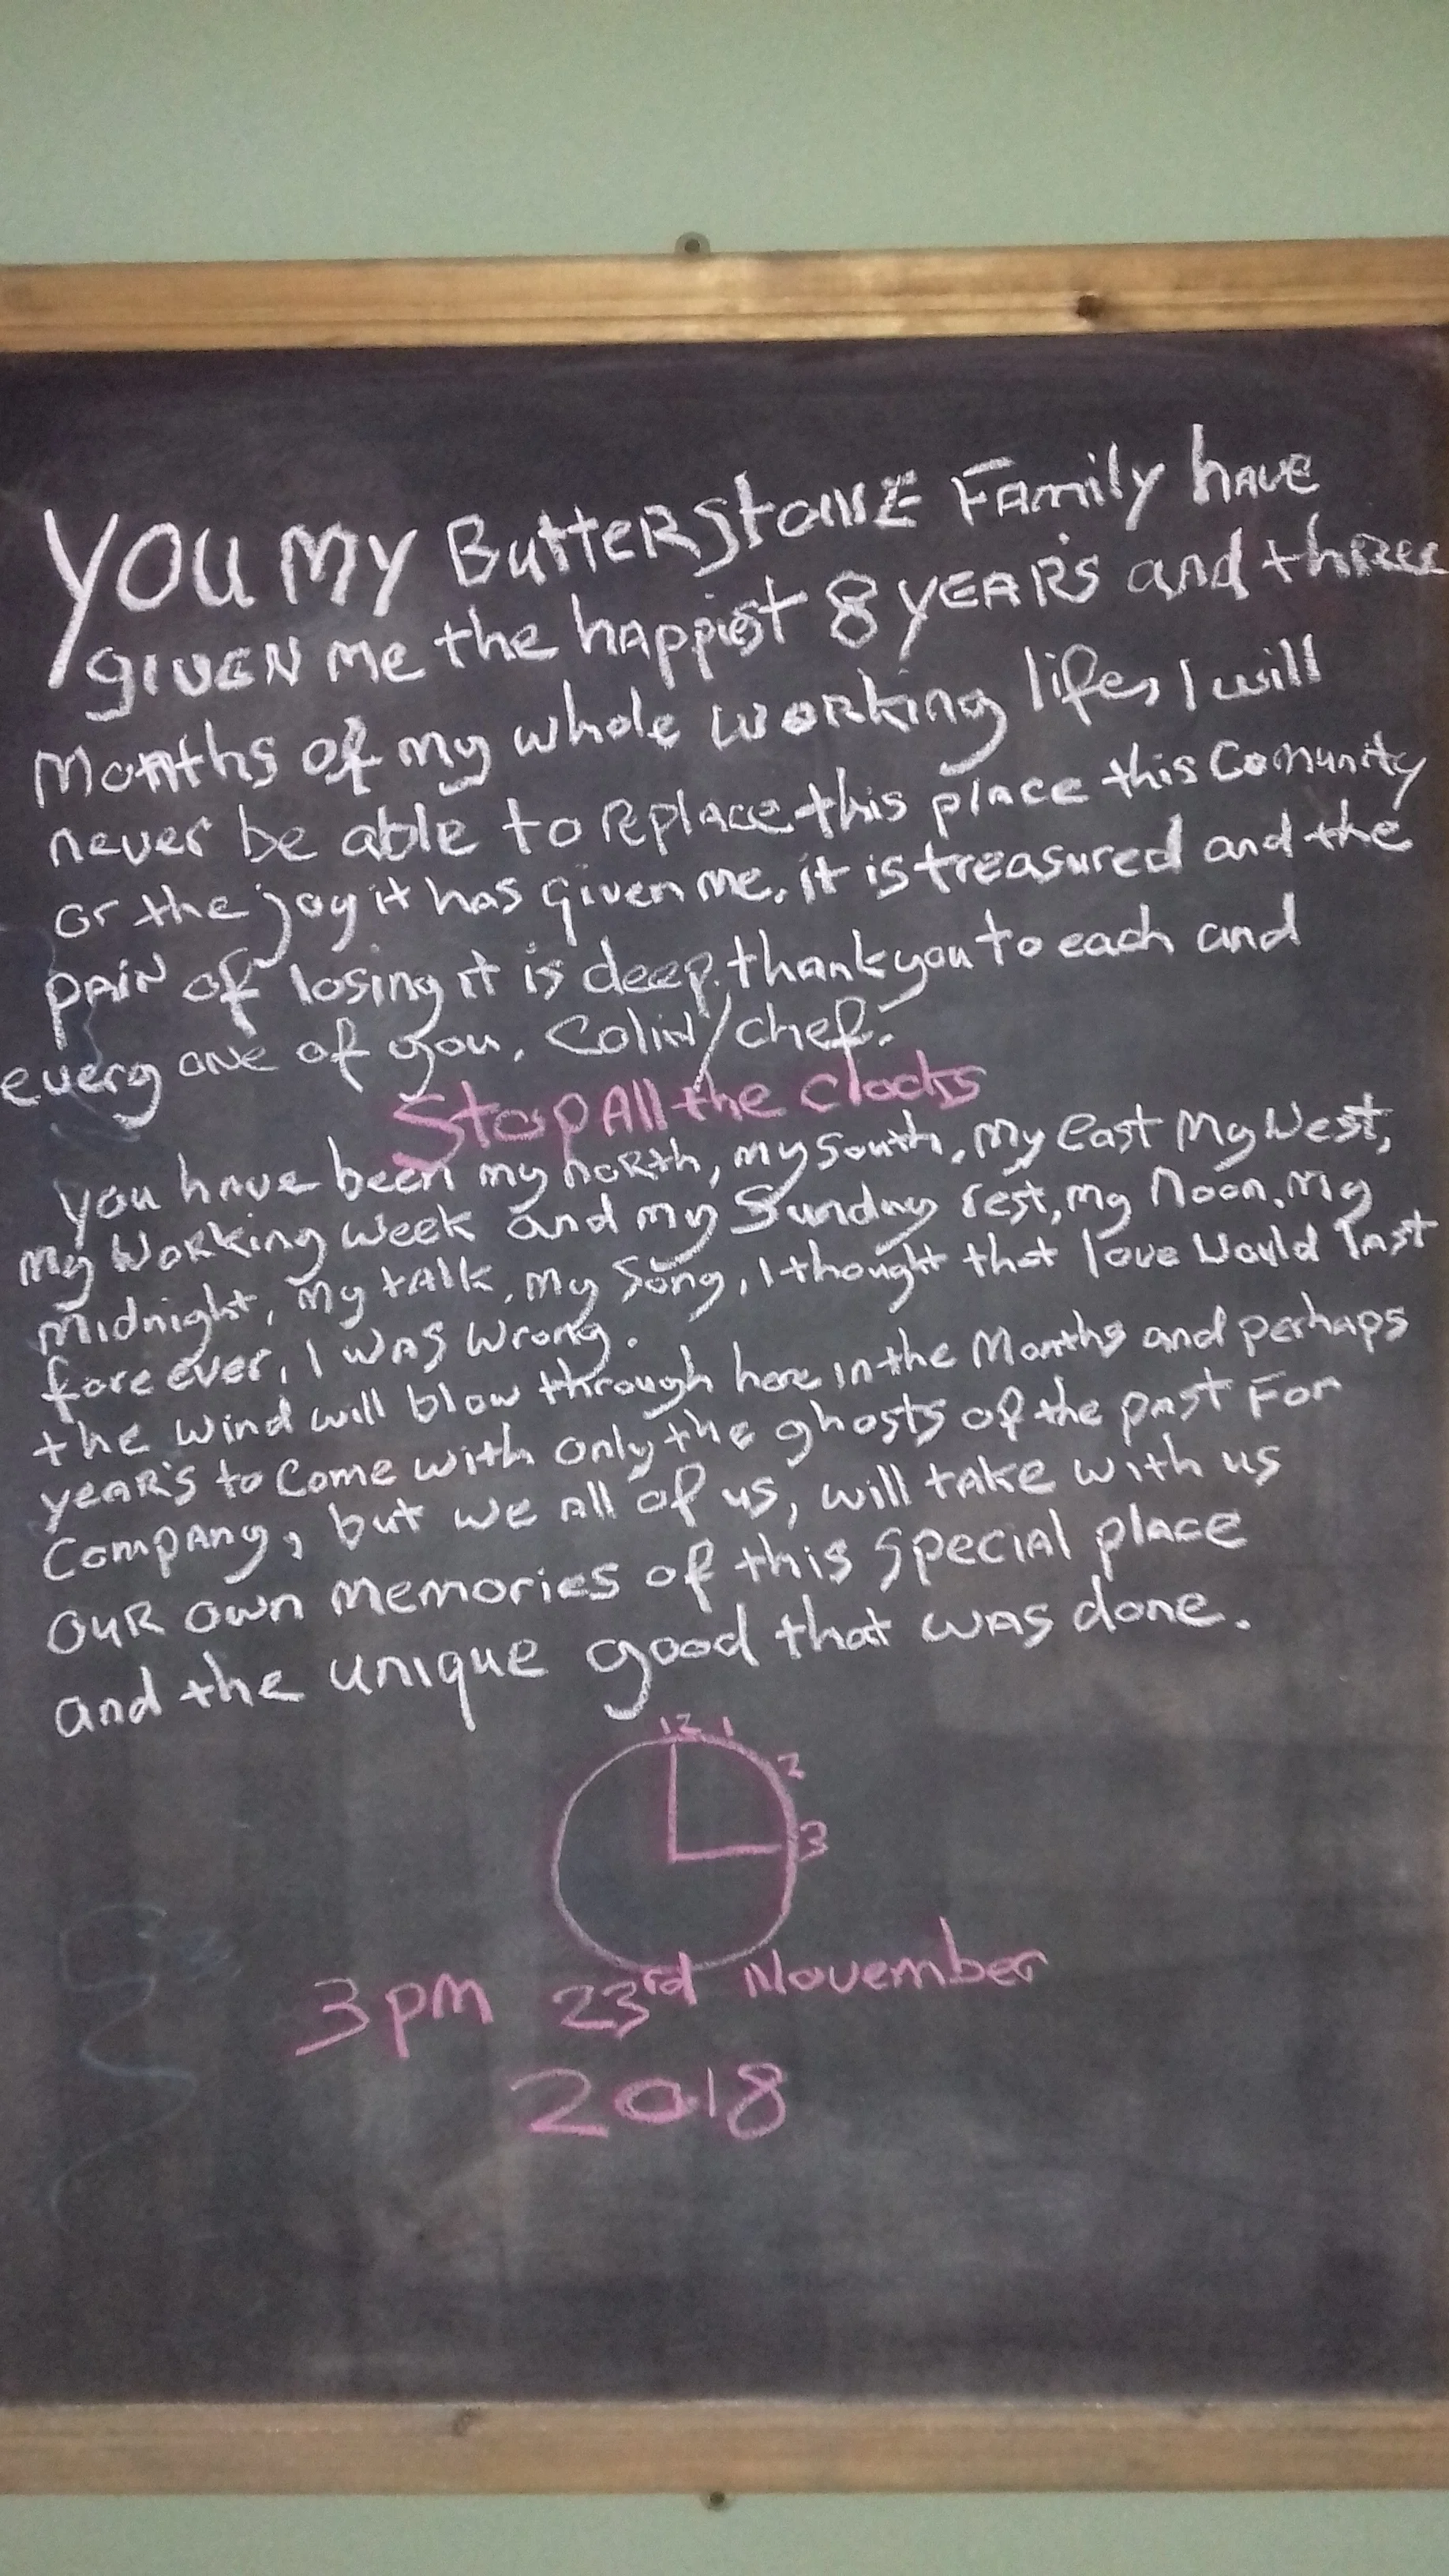 YOU MY ButteRStONE FAmily hAVE
gIVEN me the hAppiest 8 YEARS and thREE
Months of my whole woRking life, I will
never be able to REplace this plAce this Comunity
or the joy it has given me, it is treasured and the
pAiN of losing it is deep. thank you to each and
every oNe of you. ColiN/chef.
Stop All the clocks
you hAve been my noRth, my South, my east My West,
my WoRking week and my Sunday rest, my Noon, My
MiDnight, My tAlk, my Song, I thought that love Would lAst
fore ever, I wAS Wrong.
the wind will blow through here in the Months and perhaps
yeAR'S to Come with only the ghosts of the pAst For
CompANy, but we All of us, will tAKe with us
OUR own memories of this SpeciAl place
and the unique good that wAS done.
12 1
2
3
3pm 23rd November
2018